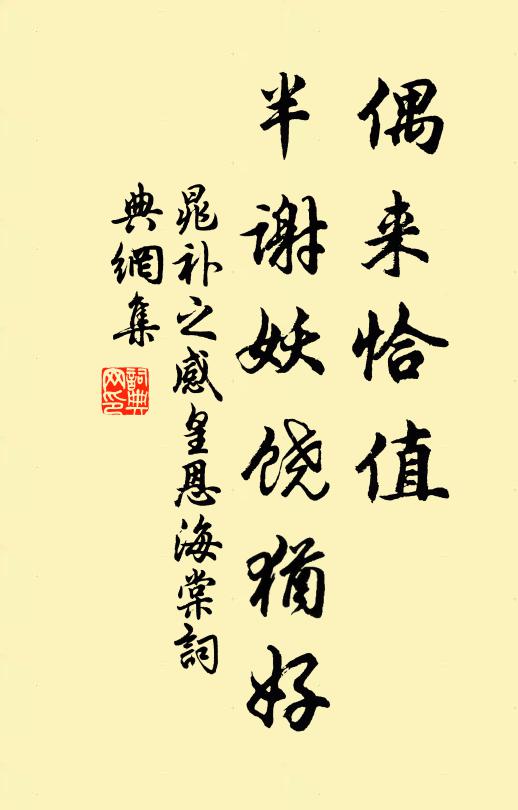 偶来恰值
半谢妖饶犹好
晁补之感皇恩海棠詞
典網集
詞典
网印